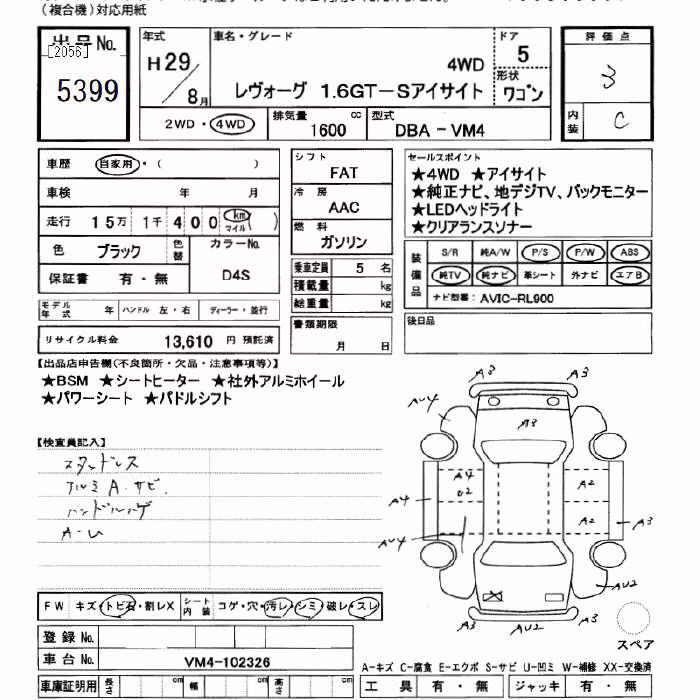 (複合機)対応用紙
出品No.
[2056]
5399
年式
H29/8月
車名・グレード
4WD
レヴォーグ 1.6GT-Sアイサイト
ドア
5
形状
ワゴン
評価点
3
内装
C
2WD・4WD
排気量 1600 cc
型式 DBA-VM4
車歴 自家用・( )
車検 年 月
走行 15万 1千 400 km マイル( )
色 ブラック
色替
カラーNo.
D4S
保証書 有・無
モデル年式 年 ハンドル 左・右 ディーラー・並行
リサイクル料金 13,610 円 預託済
シフト
FAT
冷房
AAC
燃料
ガソリン
乗車定員 5 名
積載量 kg
総重量 kg
書類期限
月 日
セールスポイント
★4WD ★アイサイト
★純正ナビ、地デジTV、バックモニター
★LEDヘッドライト
★クリアランスソナー
装備品
S/R 純A/W P/S P/W ABS
純TV 純ナビ 革シート 外ナビ エアB
ナビ型番: AVIC-RL900
後日品
【出品店申告欄(不良箇所・欠品・注意事項等)】
★BSM ★シートヒーター ★社外アルミホイール
★パワーシート ★パドルシフト
【検査員記入】
スタッドレス
アルミ A.サビ.
ハンドルハゲ
A-U
A3 A3
AU4
A3
A4 A2
U2
A4
A2 A3
AU4
AU2
A3 AU2 A3
スペア
FW キズ・トビ石・割レX シート内装 コゲ・穴・汚レ・シミ・破レ・スレ
登録No.
車台No. VM4-102326
車庫証明用 長さ cm 幅 cm 高さ cm
A-キズ C-腐食 E-エクボ S-サビ U-凹ミ W-補修 XX-交換済
工具 有・無 ジャッキ 有・無